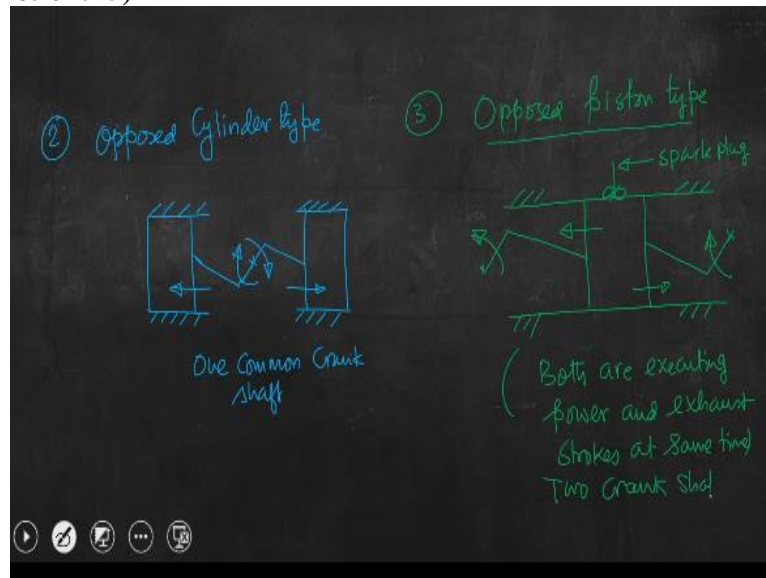 ② Opposed Cylinder type
One Common Crank
shaft
③ Opposed Piston type
spark plug
( Both are executing
power and exhaust
strokes at same time)
Two Crank Sha